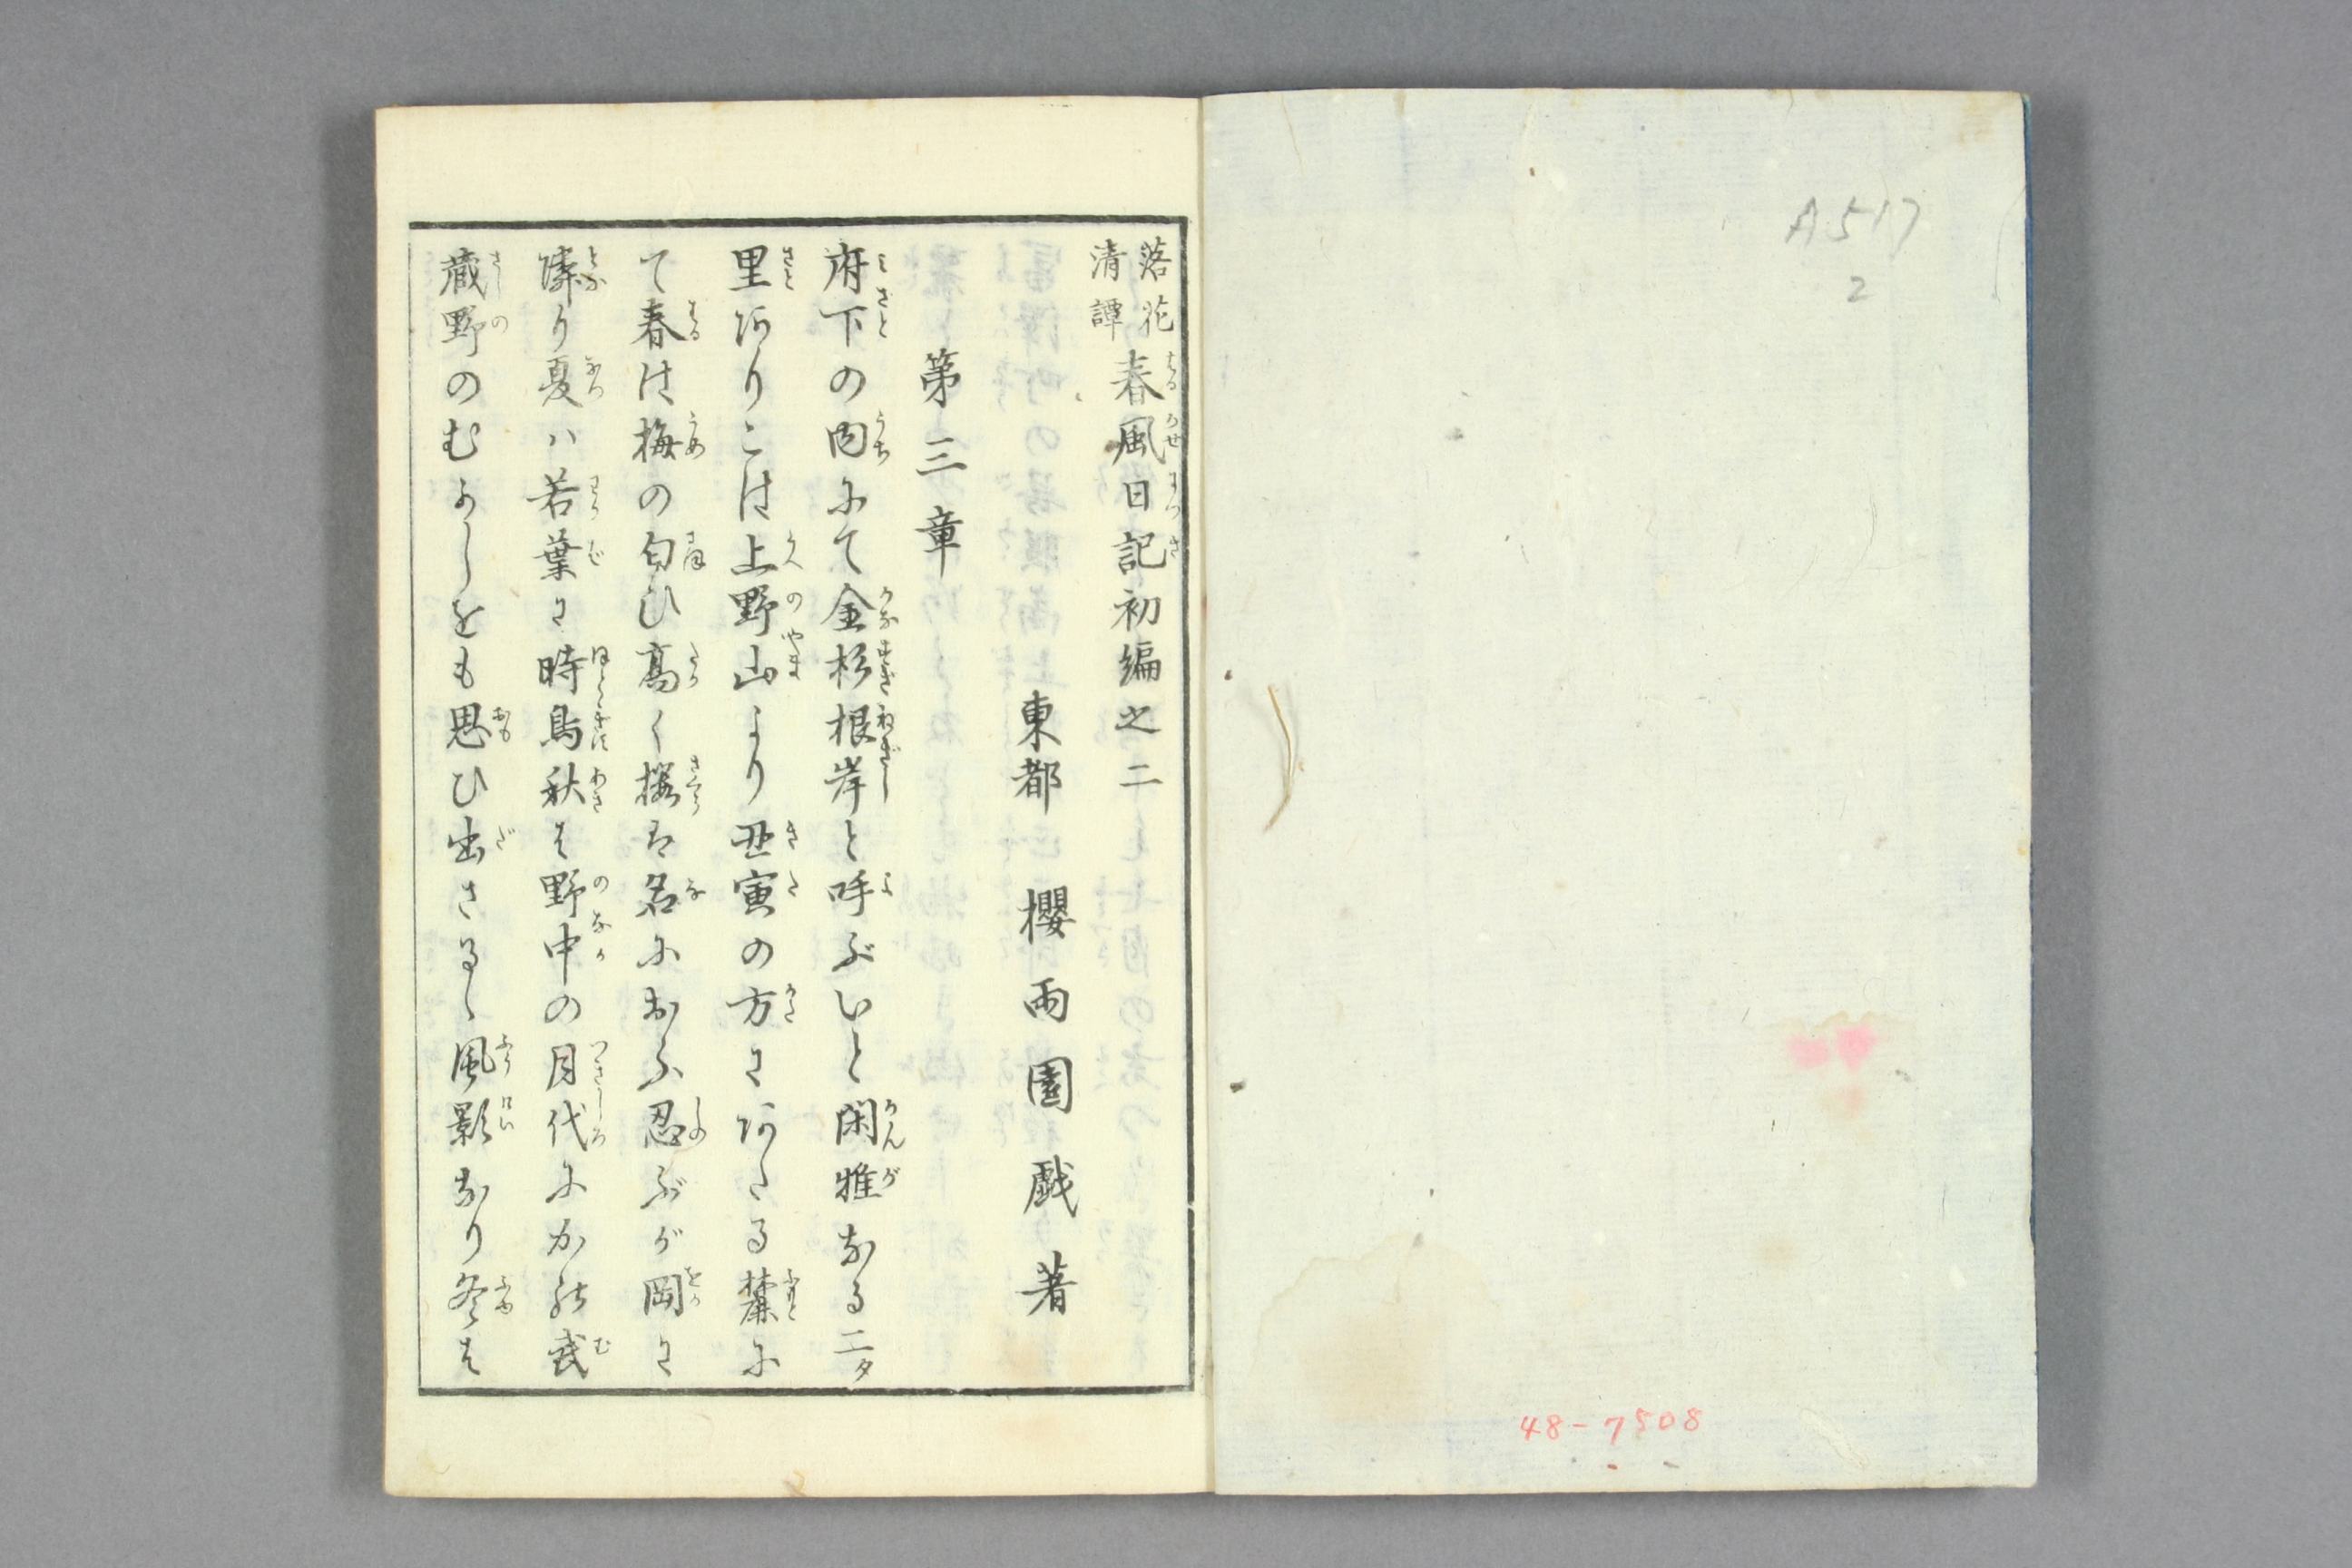 A517
2
48-7508
落花
清譚
春風日記初編之二
東都 櫻雨園戯著
第三章
府下の内にて金杉根岸と呼ぶいと閑雅なる二タ
里ありこは上野山より丑寅の方にあたる麓に
て春は梅の匂ひ髙く桜は名におふ忍ぶが岡に
隣り夏ハ若葉に時鳥秋は野中の月代にかの武
蔵野のむかしをも思ひ出さるゝ風影なり冬は